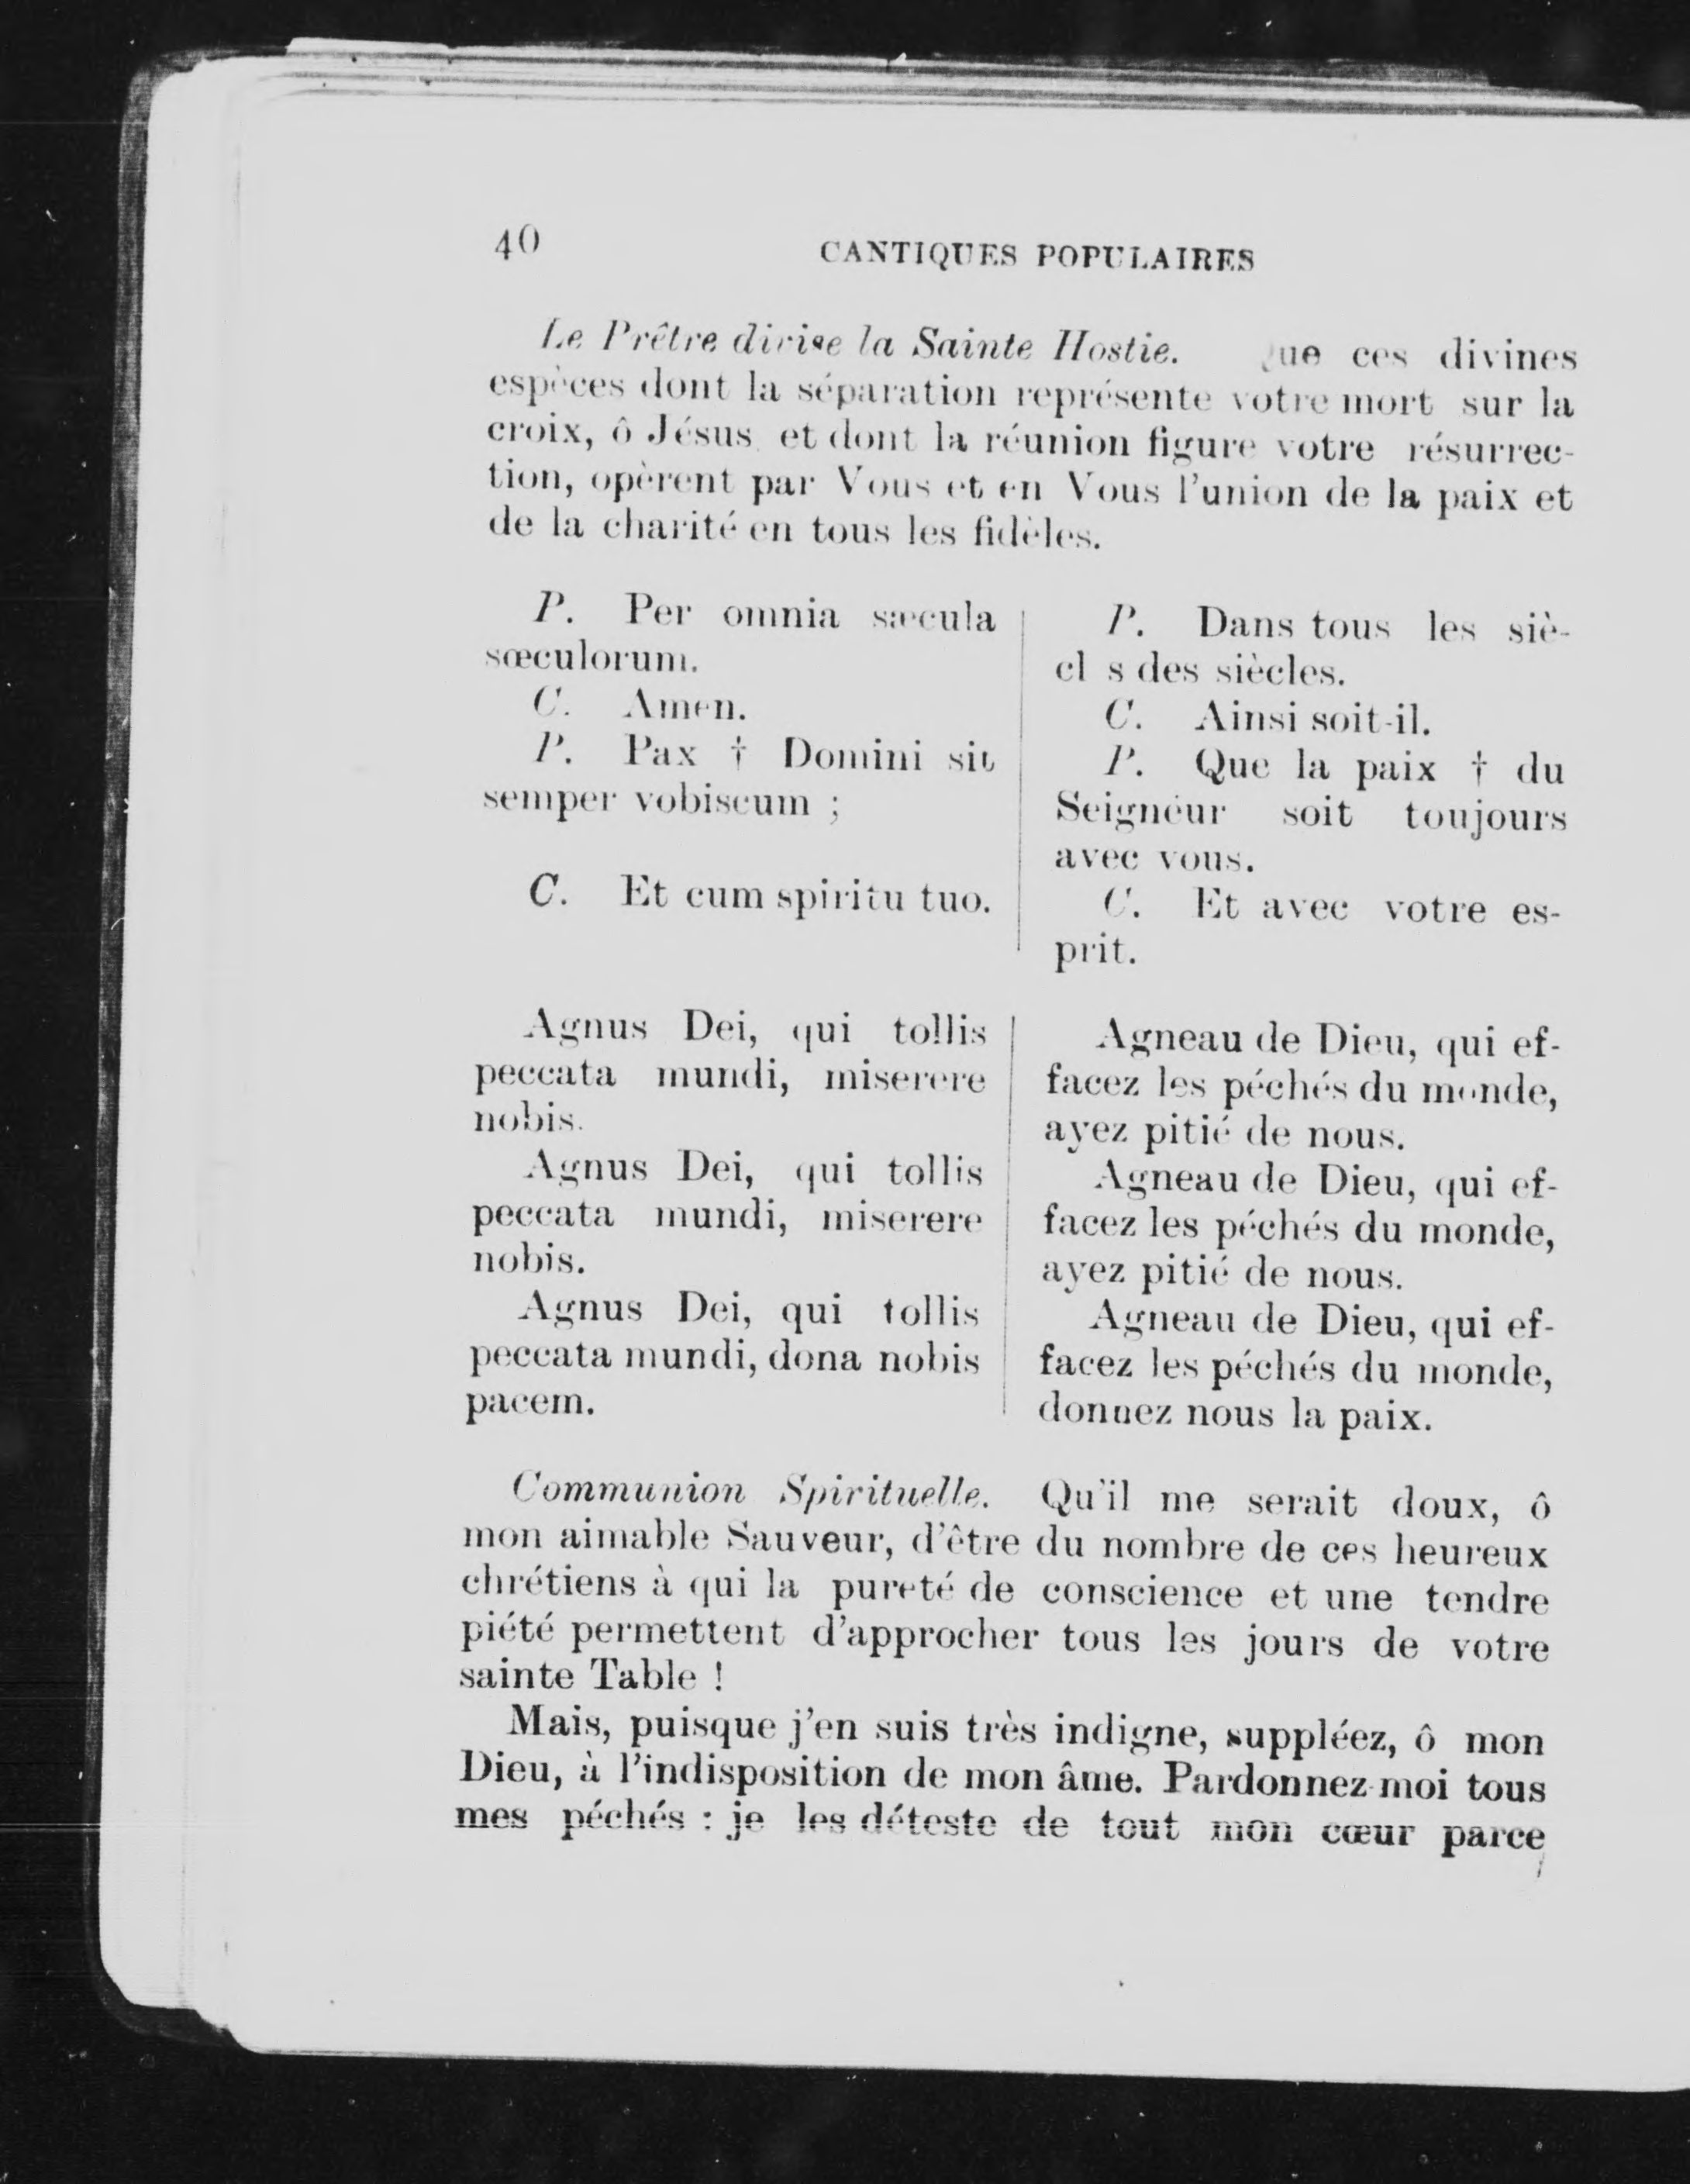 40
CANTIQUES POPULAIRES
Le Prêtre divise la Sainte Hostie. Que ces divines
espèces dont la séparation représente votre mort sur la
croix, ô Jésus et dont la réunion figure votre résurrec-
tion, opèrent par Vous et en Vous l'union de la paix et
de la charité en tous les fidèles.
P. Per omnia sæcula
sœculorum.
C. Amen.
P. Pax † Domini sit
semper vobiscum ;
C. Et cum spiritu tuo.
P. Dans tous les siè-
cl s des siècles.
C. Ainsi soit-il.
P. Que la paix † du
Seigneur soit toujours
avec vous.
C. Et avec votre es-
prit.
Agnus Dei, qui tollis
peccata mundi, miserere
nobis.
Agnus Dei, qui tollis
peccata mundi, miserere
nobis.
Agnus Dei, qui tollis
peccata mundi, dona nobis
pacem.
Agneau de Dieu, qui ef-
facez les péchés du monde,
ayez pitié de nous.
Agneau de Dieu, qui ef-
facez les péchés du monde,
ayez pitié de nous.
Agneau de Dieu, qui ef-
facez les péchés du monde,
donnez nous la paix.
Communion Spirituelle. Qu'il me serait doux, ô
mon aimable Sauveur, d'être du nombre de ces heureux
chrétiens à qui la pureté de conscience et une tendre
piété permettent d'approcher tous les jours de votre
sainte Table !
Mais, puisque j'en suis très indigne, suppléez, ô mon
Dieu, à l'indisposition de mon âme. Pardonnez-moi tous
mes péchés : je les déteste de tout mon cœur parce